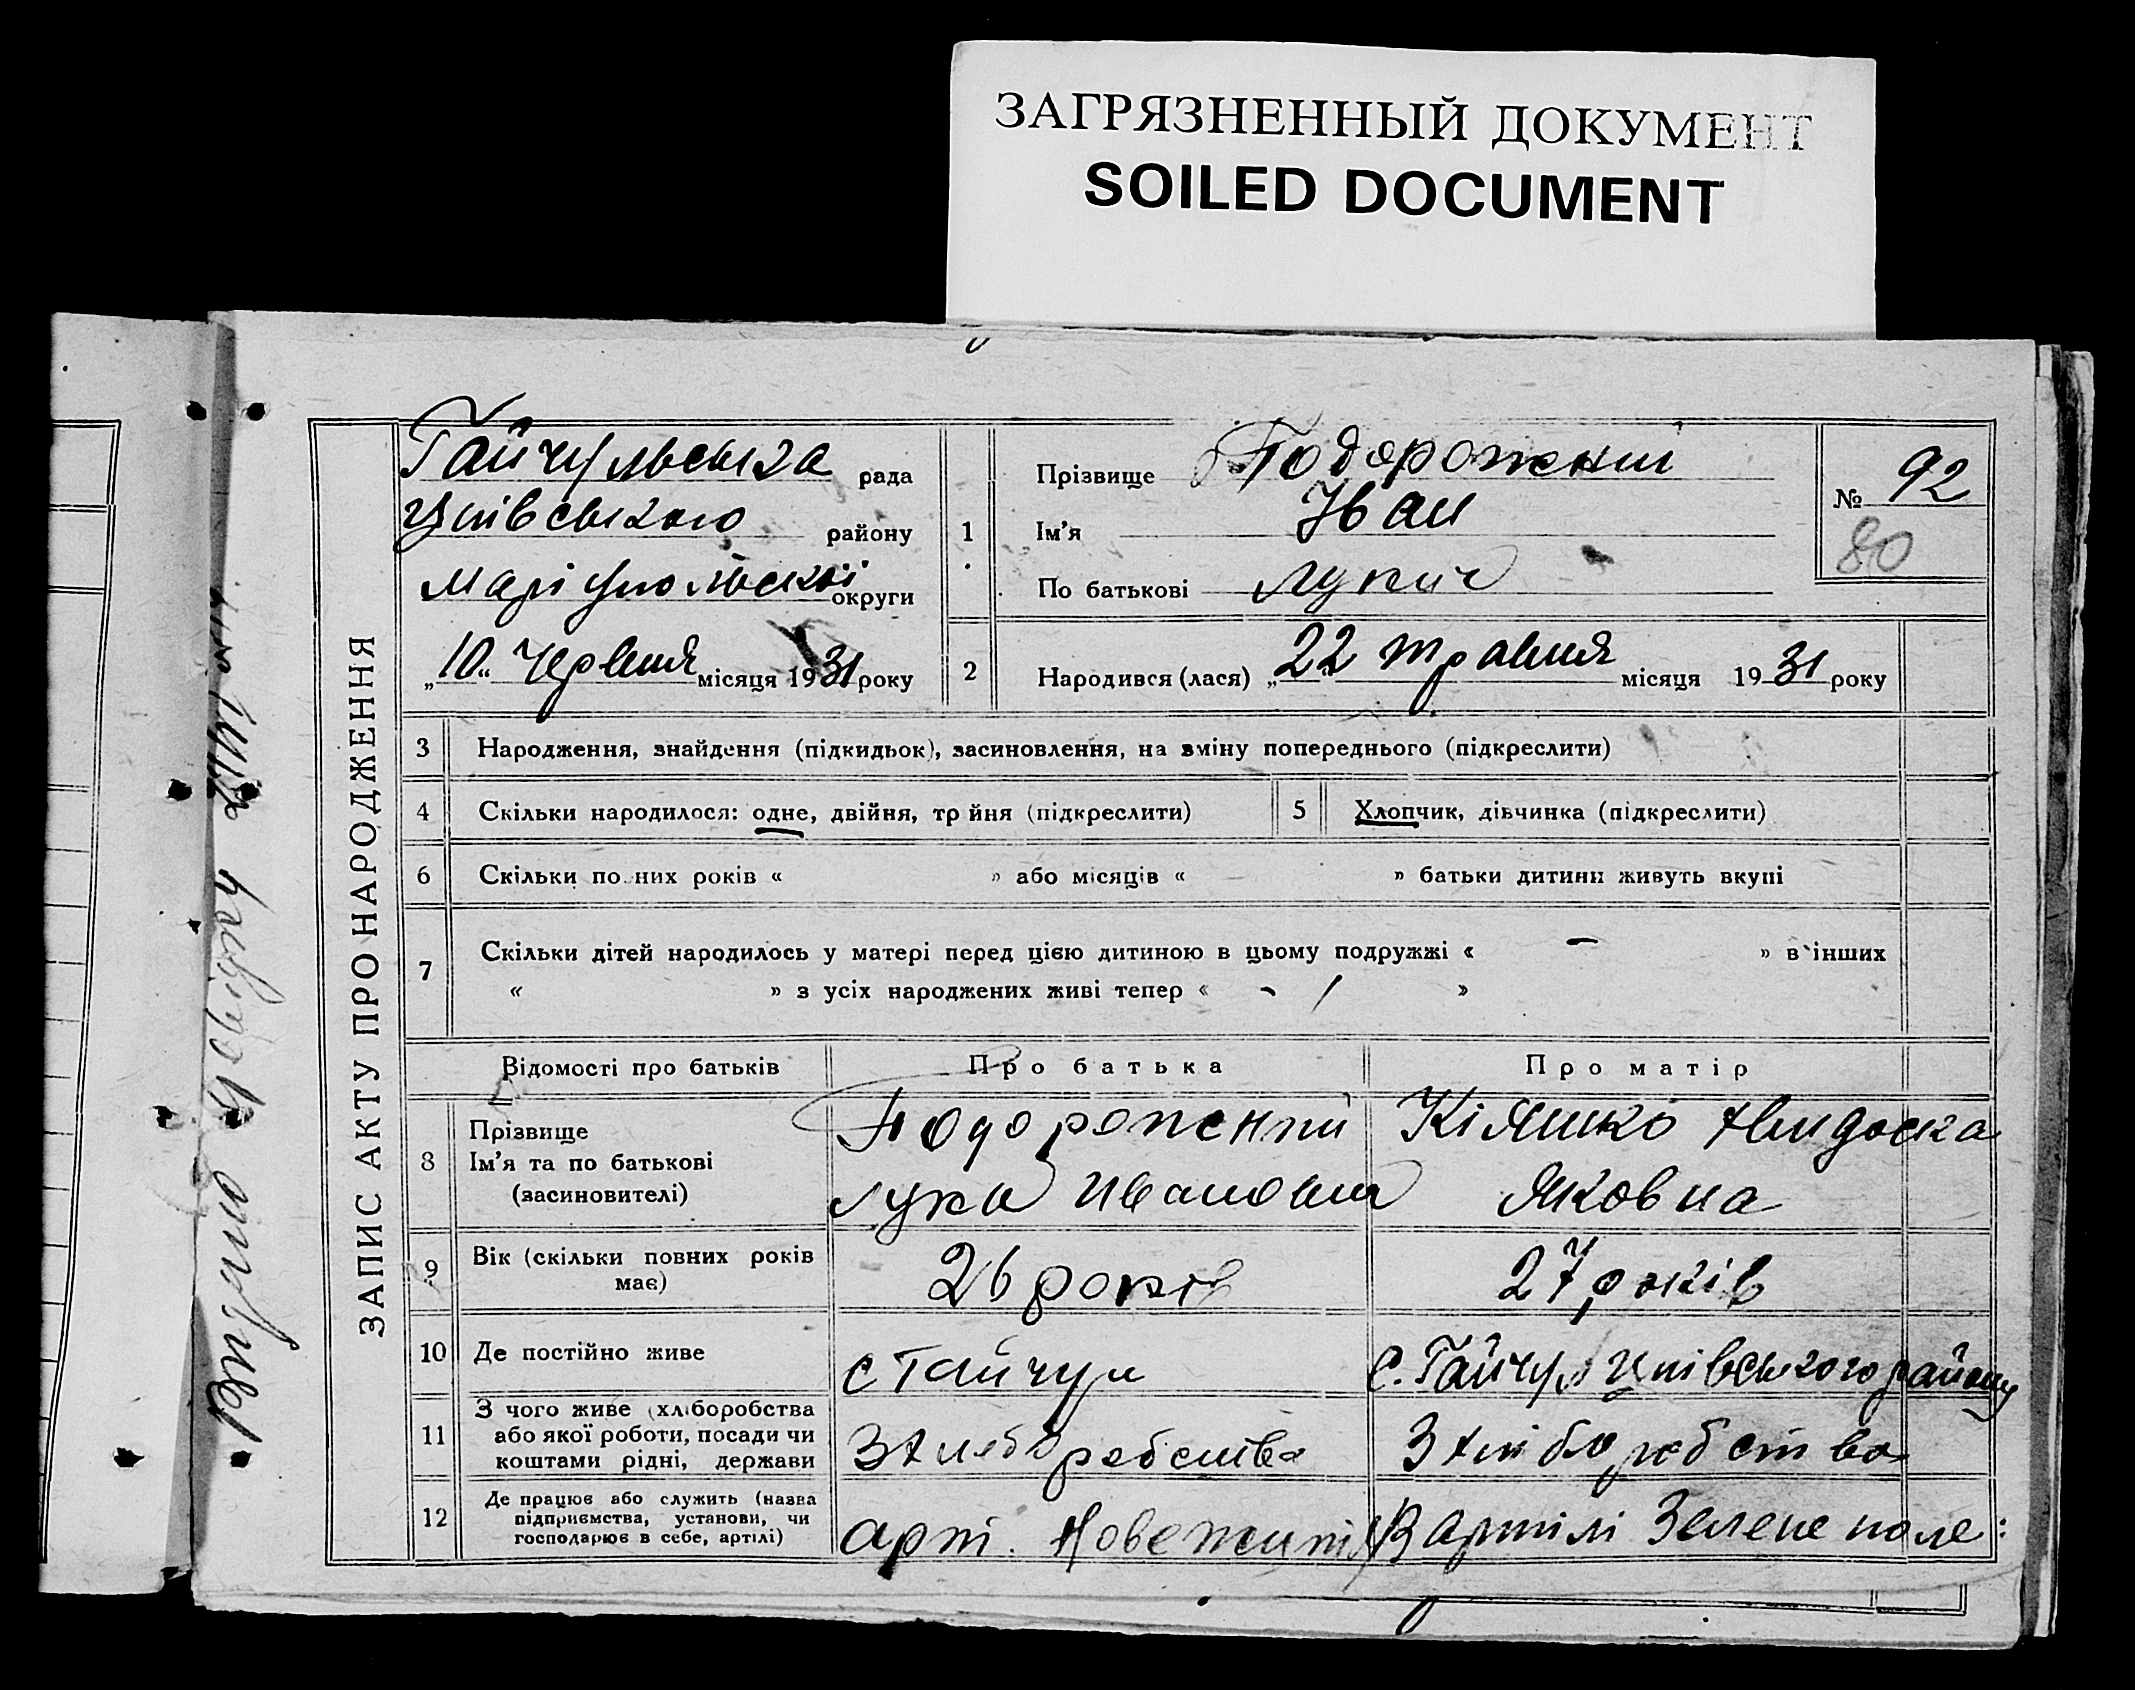 ЗАГРЯЗНЕННЫЙ ДОКУМЕНТ
SOILED DOCUMENT
ЗАПИС АКТУ ПРО НАРОДЖЕННЯ
Гайчульська рада
району
Маріупольської округи
„10“ червня місяця 1931 року
1
Прізвище Подорожний
Ім'я Іван
По батькові Лукич
№ 92
80
2 Народився (лася) „22 травня місяця 1931 року
3 Народження, знайдення (підкидьок), засиновлення, на зміну попереднього (підкреслити)
4 Скільки народилося: одне, двійня, тр йня (підкреслити) 5 Хлопчик, дівчинка (підкреслити)
6 Скільки по них років « » або місяців « » батьки дитини живуть вкупі
7 Скільки дітей народилось у матері перед цією дитиною в цьому подружжі « — » в інших
« » з усіх народжених живі тепер « - / »
Відомості про батьків Про батька Про матір
8 Прізвище
Ім'я та по батькові
(засиновителі)
Подорожний
Лука Иванович
Кіяшко
Яковна
9 Вік (скільки повних років
має)
26 років
27 років
10 Де постійно живе
с Гайчул
с. Гайчул району
11 З чого живе (хліборобства
або якої роботи, посади чи
коштами рідні, держави
З хліборобства
З хліборобства
12 Де працює або служить (назва
підприємства, установи, чи
господарює в себе, артілі)
арт. Нове життя
В артілі Зелене поле
Видано